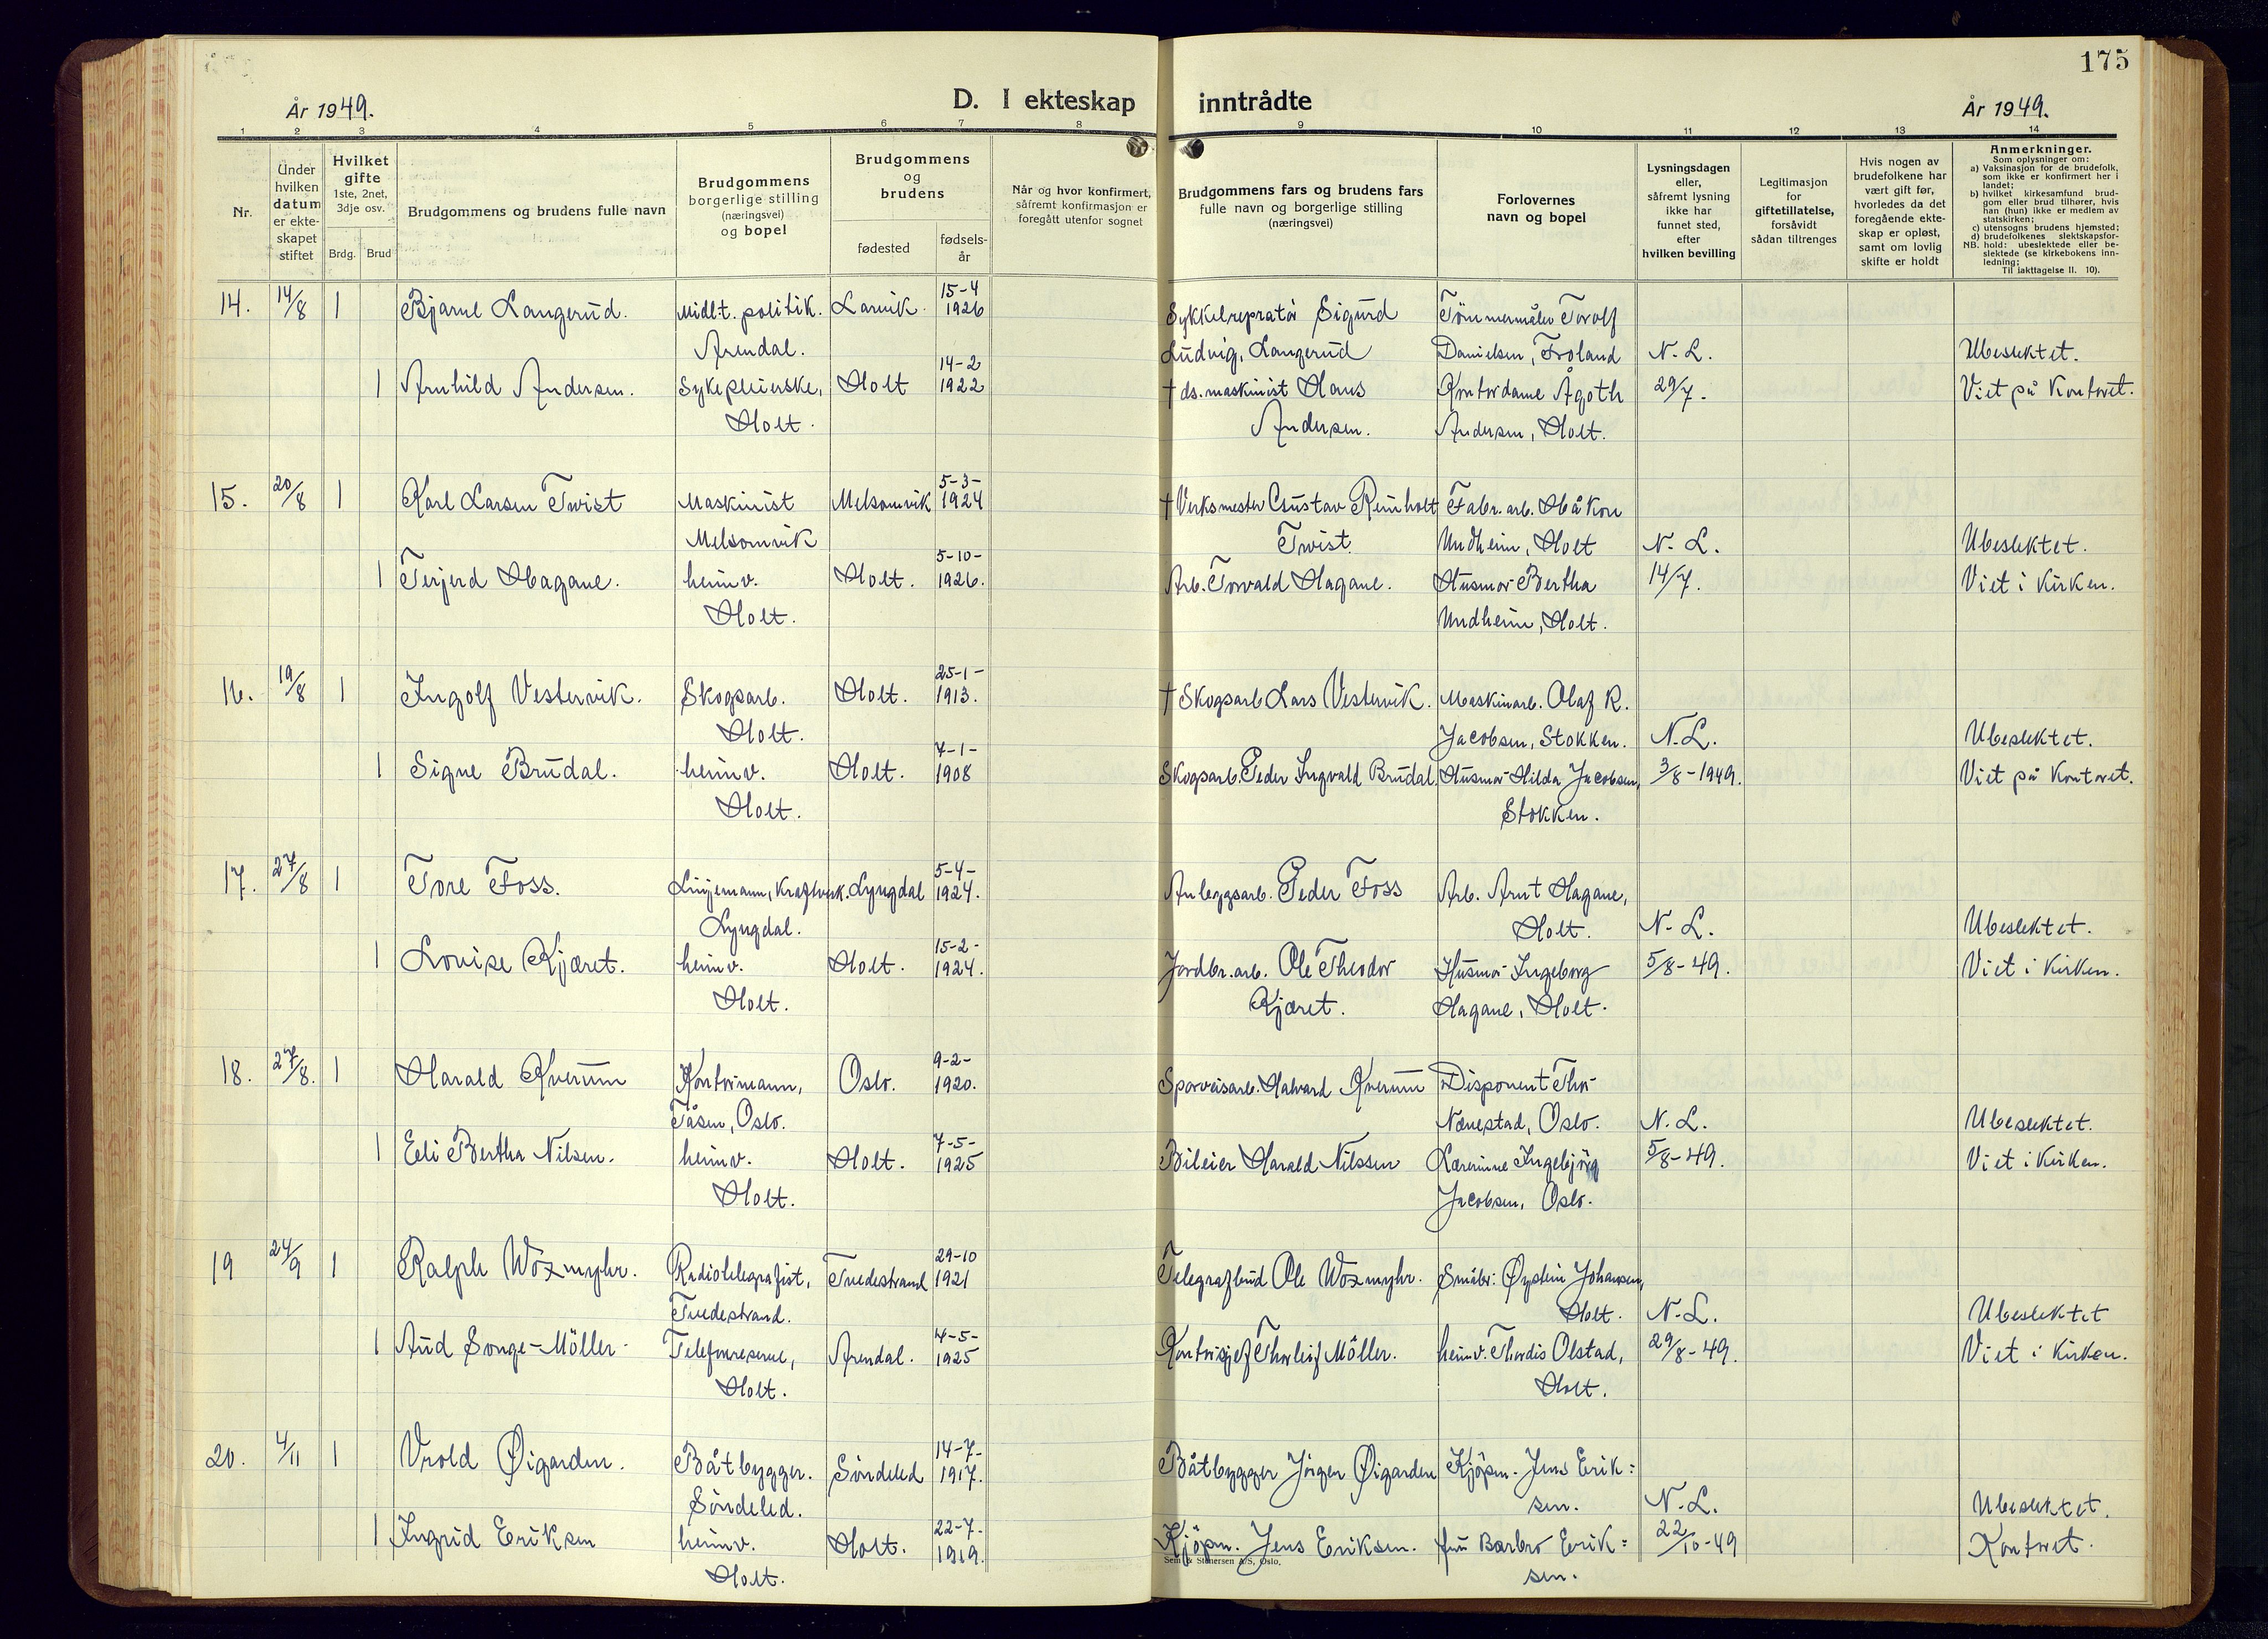 175
År 1949.
D. I ekteskap inntrådte
År 1949.
1 2 3 4 5 6 7 8 9 10 11 12 13 14
Nr.
Under
hvilken
datum
er ekte-
skapet
stiftet
Hvilket
gifte
1ste, 2net,
3dje osv.
Brdg. Brud
Brudgommens og brudens fulle navn
Brudgommens
borgerlige stilling
(næringsvei)
og bopel
Brudgommens
og
brudens
fødested
fødsels-
år
Når og hvor konfirmert,
såfremt konfirmasjon er
foregått utenfor sognet
Brudgommens fars og brudens fars
fulle navn og borgerlige stilling
(næringsvei)
Forlovernes
navn og bopel
Lysningsdagen
eller,
såfremt lysning
ikke har
funnet sted,
efter
hvilken bevilling
Legitimasjon
for
giftetillatelse,
forsåvidt
sådan tiltrenges
Hvis nogen av
brudefolkene har
vært gift før,
hvorledes da det
foregående ekte-
skap er opløst,
samt om lovlig
skifte er holdt
Anmerkninger.
Som oplysninger om:
a) Vaksinasjon for de brudefolk,
som ikke er konfirmert her i
landet;
b) hvilket kirkesamfund brud-
gom eller brud tilhører, hvis
han (hun) ikke er medlem av
statskirken;
c) utensogns brudens hjemsted;
d) brudefolkenes slektskapsfor-
NB. hold: ubeslektede eller be-
slektede (se kirkebokens inn-
ledning;
Til iakttagelse II. 10).
14. 14/8 1 Bjarne Langerud. Midlt. politik. Larvik. 15-4 1926 Sykkelrepratör Sigurd Tömmermåler Torolf
Arendal. Ludvig, Langerud Danielsen, Froland N. L. Ubeslektet.
1 Arnhild Andersen. Sykepleierske, Holt 14-2 1922 † ds. maskinist Hans Kontordame Ågoth 29/7. Viet på Kontoret.
Holt. Andersen. Andersen, Holt.
15. 20/8 1 Karl Larsen Twist Maskinist Melsomvik 5-3- 1924 † Verksmester Gustav Reinholt Fabr. arb. Håkon
Melsomvik Twist. Undheim, Holt N. L. Ubeslektet.
1 Terjerd Hagane. heimv. Holt. 5-10- 1926. Arb. Torvald Hagane. Husmor Bertha 14/7. Viet i Kirken.
Holt. Undheim, Holt.
16. 19/8 1 Ingolf Vestervik. Skogsarb. Holt. 25-1- 1913. † Skogsarb Lars Vestervik. Maskinarb. Olaf R.
Holt. Jacobsen, Stokken. N. L. Ubeslektet.
1 Signe Brudal. heimv. Holt. 7-1- 1908 Skogsarb. Peder Ingvald Brudal. Husmor Hilda Jacobsen, 3/8-1949. Viet på Kontoret.
Holt. Stokken.
17. 27/8 1 Tore Foss. Linjemann, Kraftverk. Lyngdal 5-4- 1924. Anleggsarb. Peder Foss Arb. Arnt Hagane,
Lyngdal. Holt. N. L. Ubeslektet.
1 Lovise Kjæret. heimv. Holt. 15-2- 1924. Jordbr. arb. Ole Theodor Husmor Ingeborg 5/8-49. Viet i Kirken.
Holt. Kjæret. Hagane, Holt.
18. 27/8. 1 Harald Kverum Kontormann, Oslo. 9-2- 1920. Sporveisarb. Halvard Kverum Disponent Thor
Tåsen, Oslo. Nænestad, Oslo. N. L. Ubeslektet.
1 Eli Bertha Nilsen. heimv. Holt. 7-5- 1925 Bileier Harald Nilssen Lærerinne Ingebjörg 5/8-49. Viet i Kirken.
Holt. Jacobsen, Oslo.
19 24/9 1 Ralph Woxmyhr. Radiotelegrafist, Tvedestrand 29-10 1921 Telegrafbud Ole Woxmyhr. Småbr: Øystein Johansen,
Tvedestrand. Holt. N. L. Ubeslektet
1 Aud Songe-Möller. Telefonreserve, Arendal. 4-5- 1925 Kontorsjef Thorleif Möller. heimv. Thordis Olstad, 29/8-49. Viet i Kirken.
Holt. Holt.
20. 4/11 1 Vrold Øigarden. Båtbygger. Söndeled 14-7- 1917. Båtbygger Jörgen Øigarden Kjöpm. Jens Erik=
Söndeled. sen. N. L. Ubeslektet.
1 Ingrid Eriksen heimv. Holt. 22-7- 1919. Kjöpm. Jens Eriksen. fru Barbro Erik= 22/10-49 Kontoret.
Holt. sen.
Sem & Stenersen A/S, Oslo.